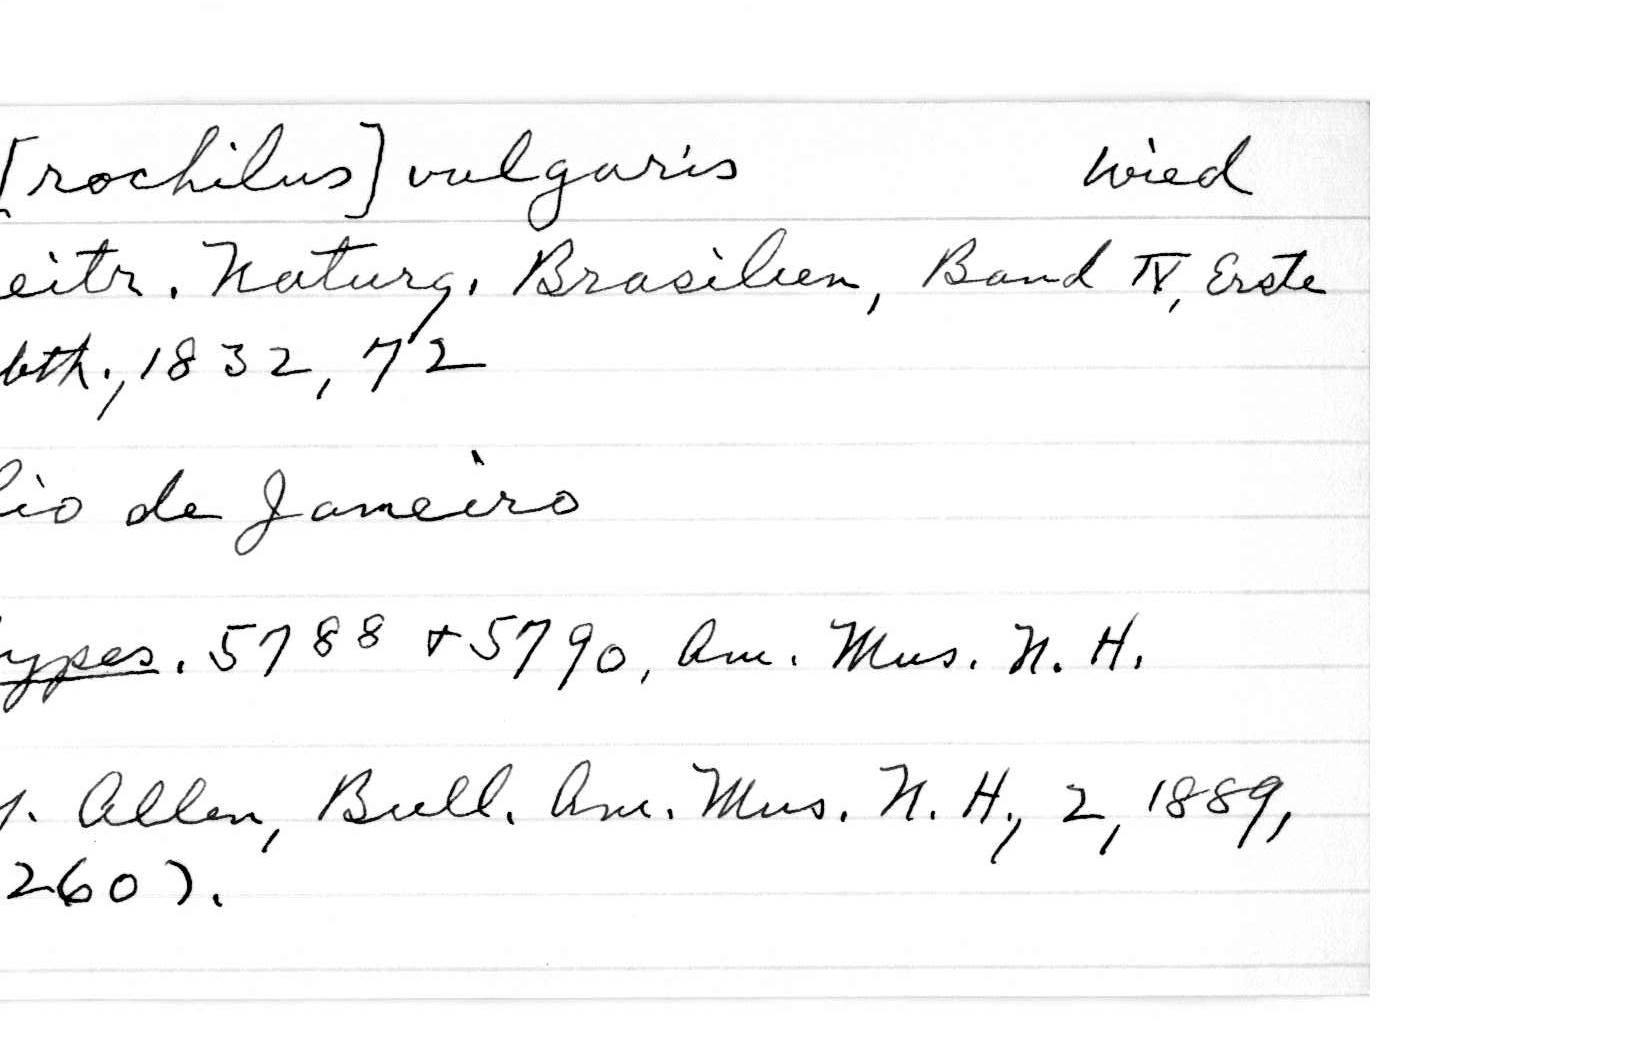 [rochilus] vulgaris Wied
eitr. Naturg. Brasilien, Band IV, Erste
bth., 1832, 72
io de Janeiro
ypes. 5788 + 5790, Am. Mus. N. H.
. Allen, Bull. Am. Mus. N. H., 2, 1889,
260).